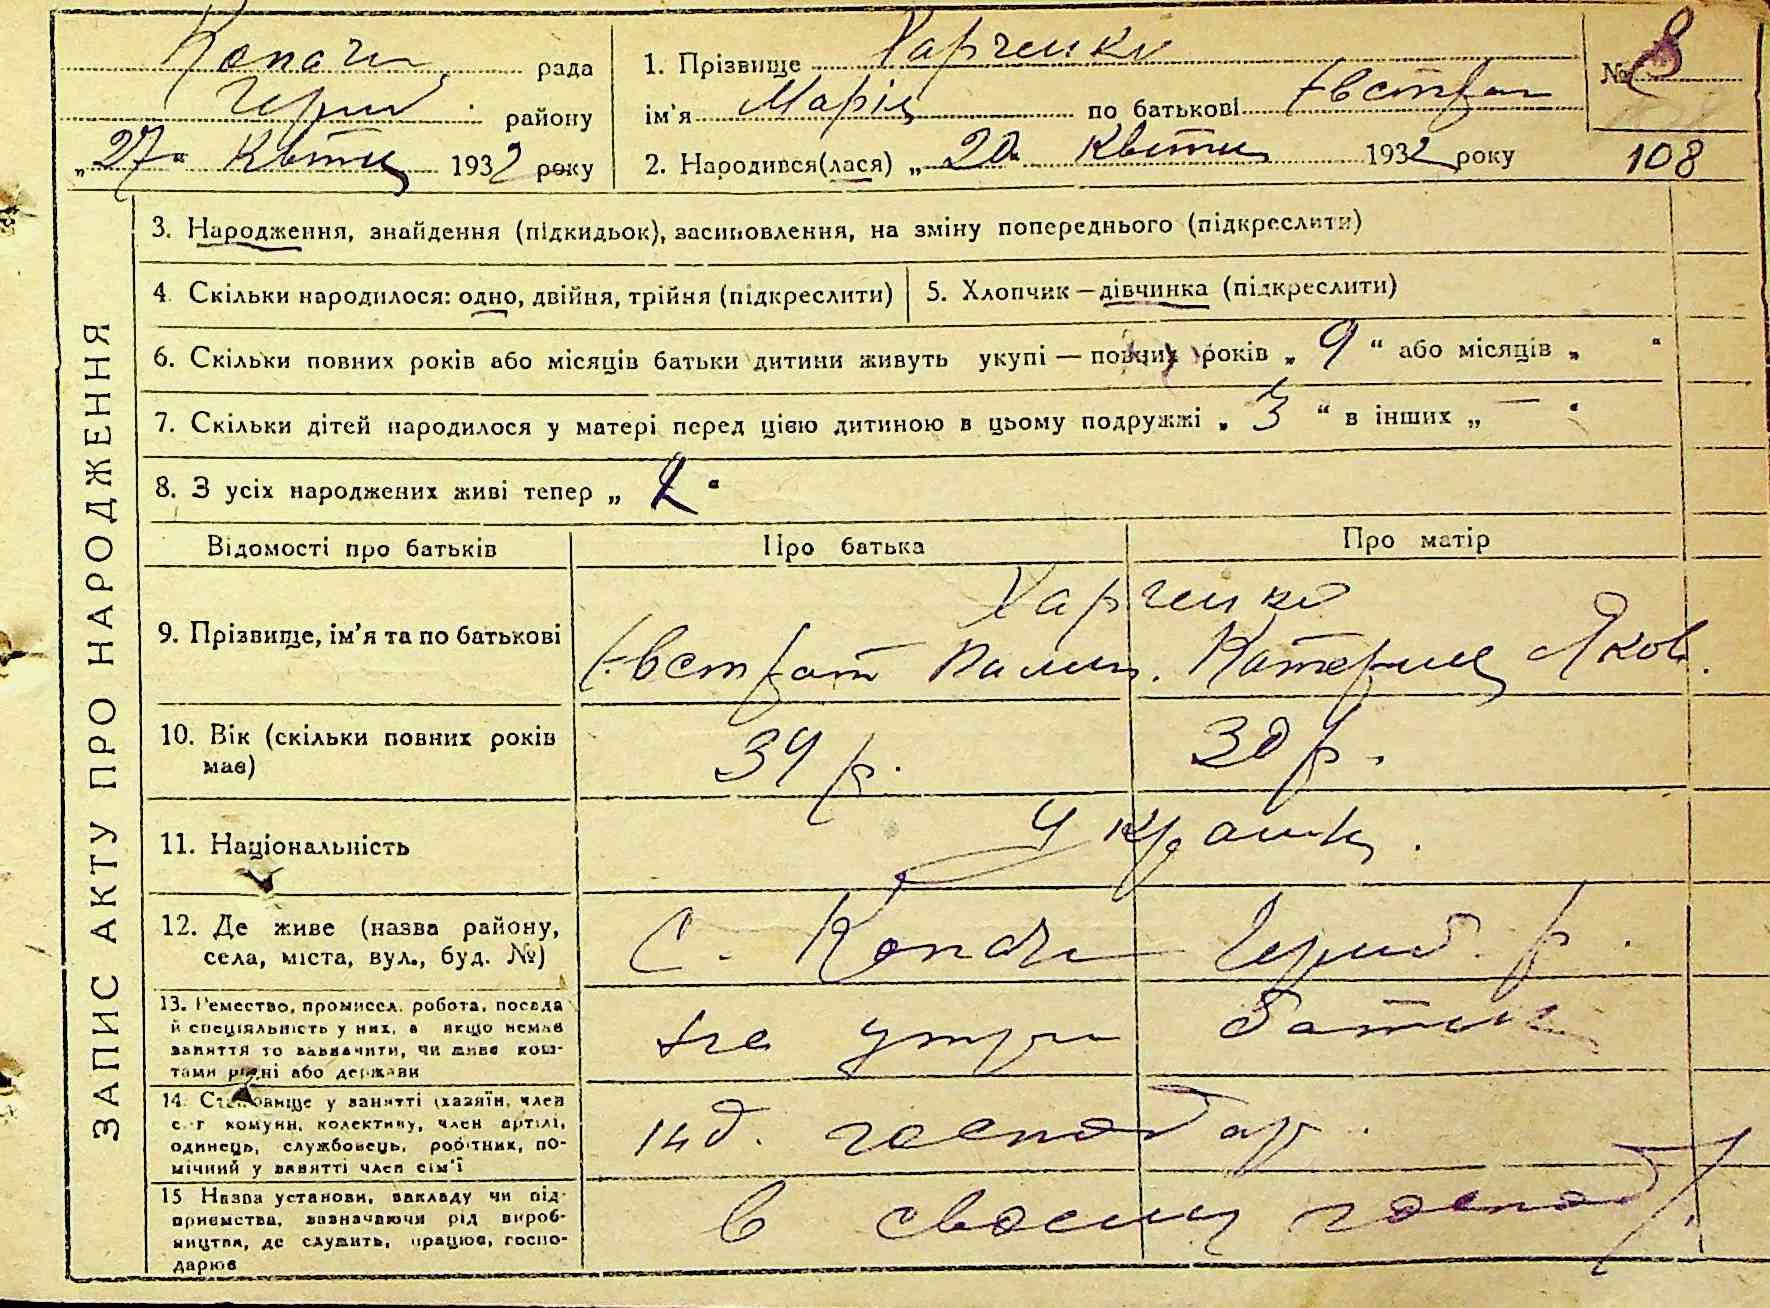 Копачі рада
Черниб. району
„27“ Квітн 1932 року
1. Прізвище Харченко
ім'я Марія по батькові Євстрат
2. Народився(лася) „20“ Квітн 1932 року
№ 8
108
ЗАПИС АКТУ ПРО НАРОДЖЕННЯ
3. Народження, знайдення (підкидьок), засиновлення, на зміну попереднього (підкреслити)
4. Скільки народилося: одно, двійня, трійня (підкреслити)
5. Хлопчик — дівчинка (підкреслити)
6. Скільки повних років або місяців батьки дитини живуть укупі — повних років „ 9 “ або місяців „ “
7. Скільки дітей народилося у матері перед цією дитиною в цьому подружжі „ 3 “ в інших „ — “
8. З усіх народжених живі тепер „ “
Відомості про батьків
Про батька
Про матір
9. Прізвище, ім'я та по батькові
Харченко
Євстрат
Катерина Яков.
10. Вік (скільки повних років
має)
34 р.
30 р.
11. Національність
Україн.
12. Де живе (назва району,
села, міста, вул., буд. №)
С. Копачі Черниб. р.
13. Ремество, промисел, робота, посада
й спеціяльність у них, а якщо немає
заняття то зазначити, чи живе кош-
тами рідні або держави
на утри
14. Становище у занятті (хазяїн, член
с.-г. комуни, колективу, член артілі,
одинець, службовець, робітник, по-
мічний у занятті член сім'ї
інд. господар.
15 Назва установи, закладу чи під-
приємства, зазначаючи рід вироб-
ництва, де служить, працює, госпо-
дарює
в своєму господ.